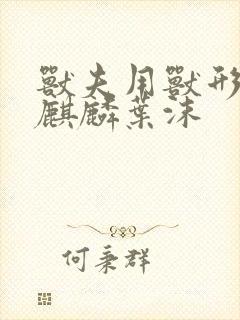 獸夫用獸形
麒麟葉沫
何秉群